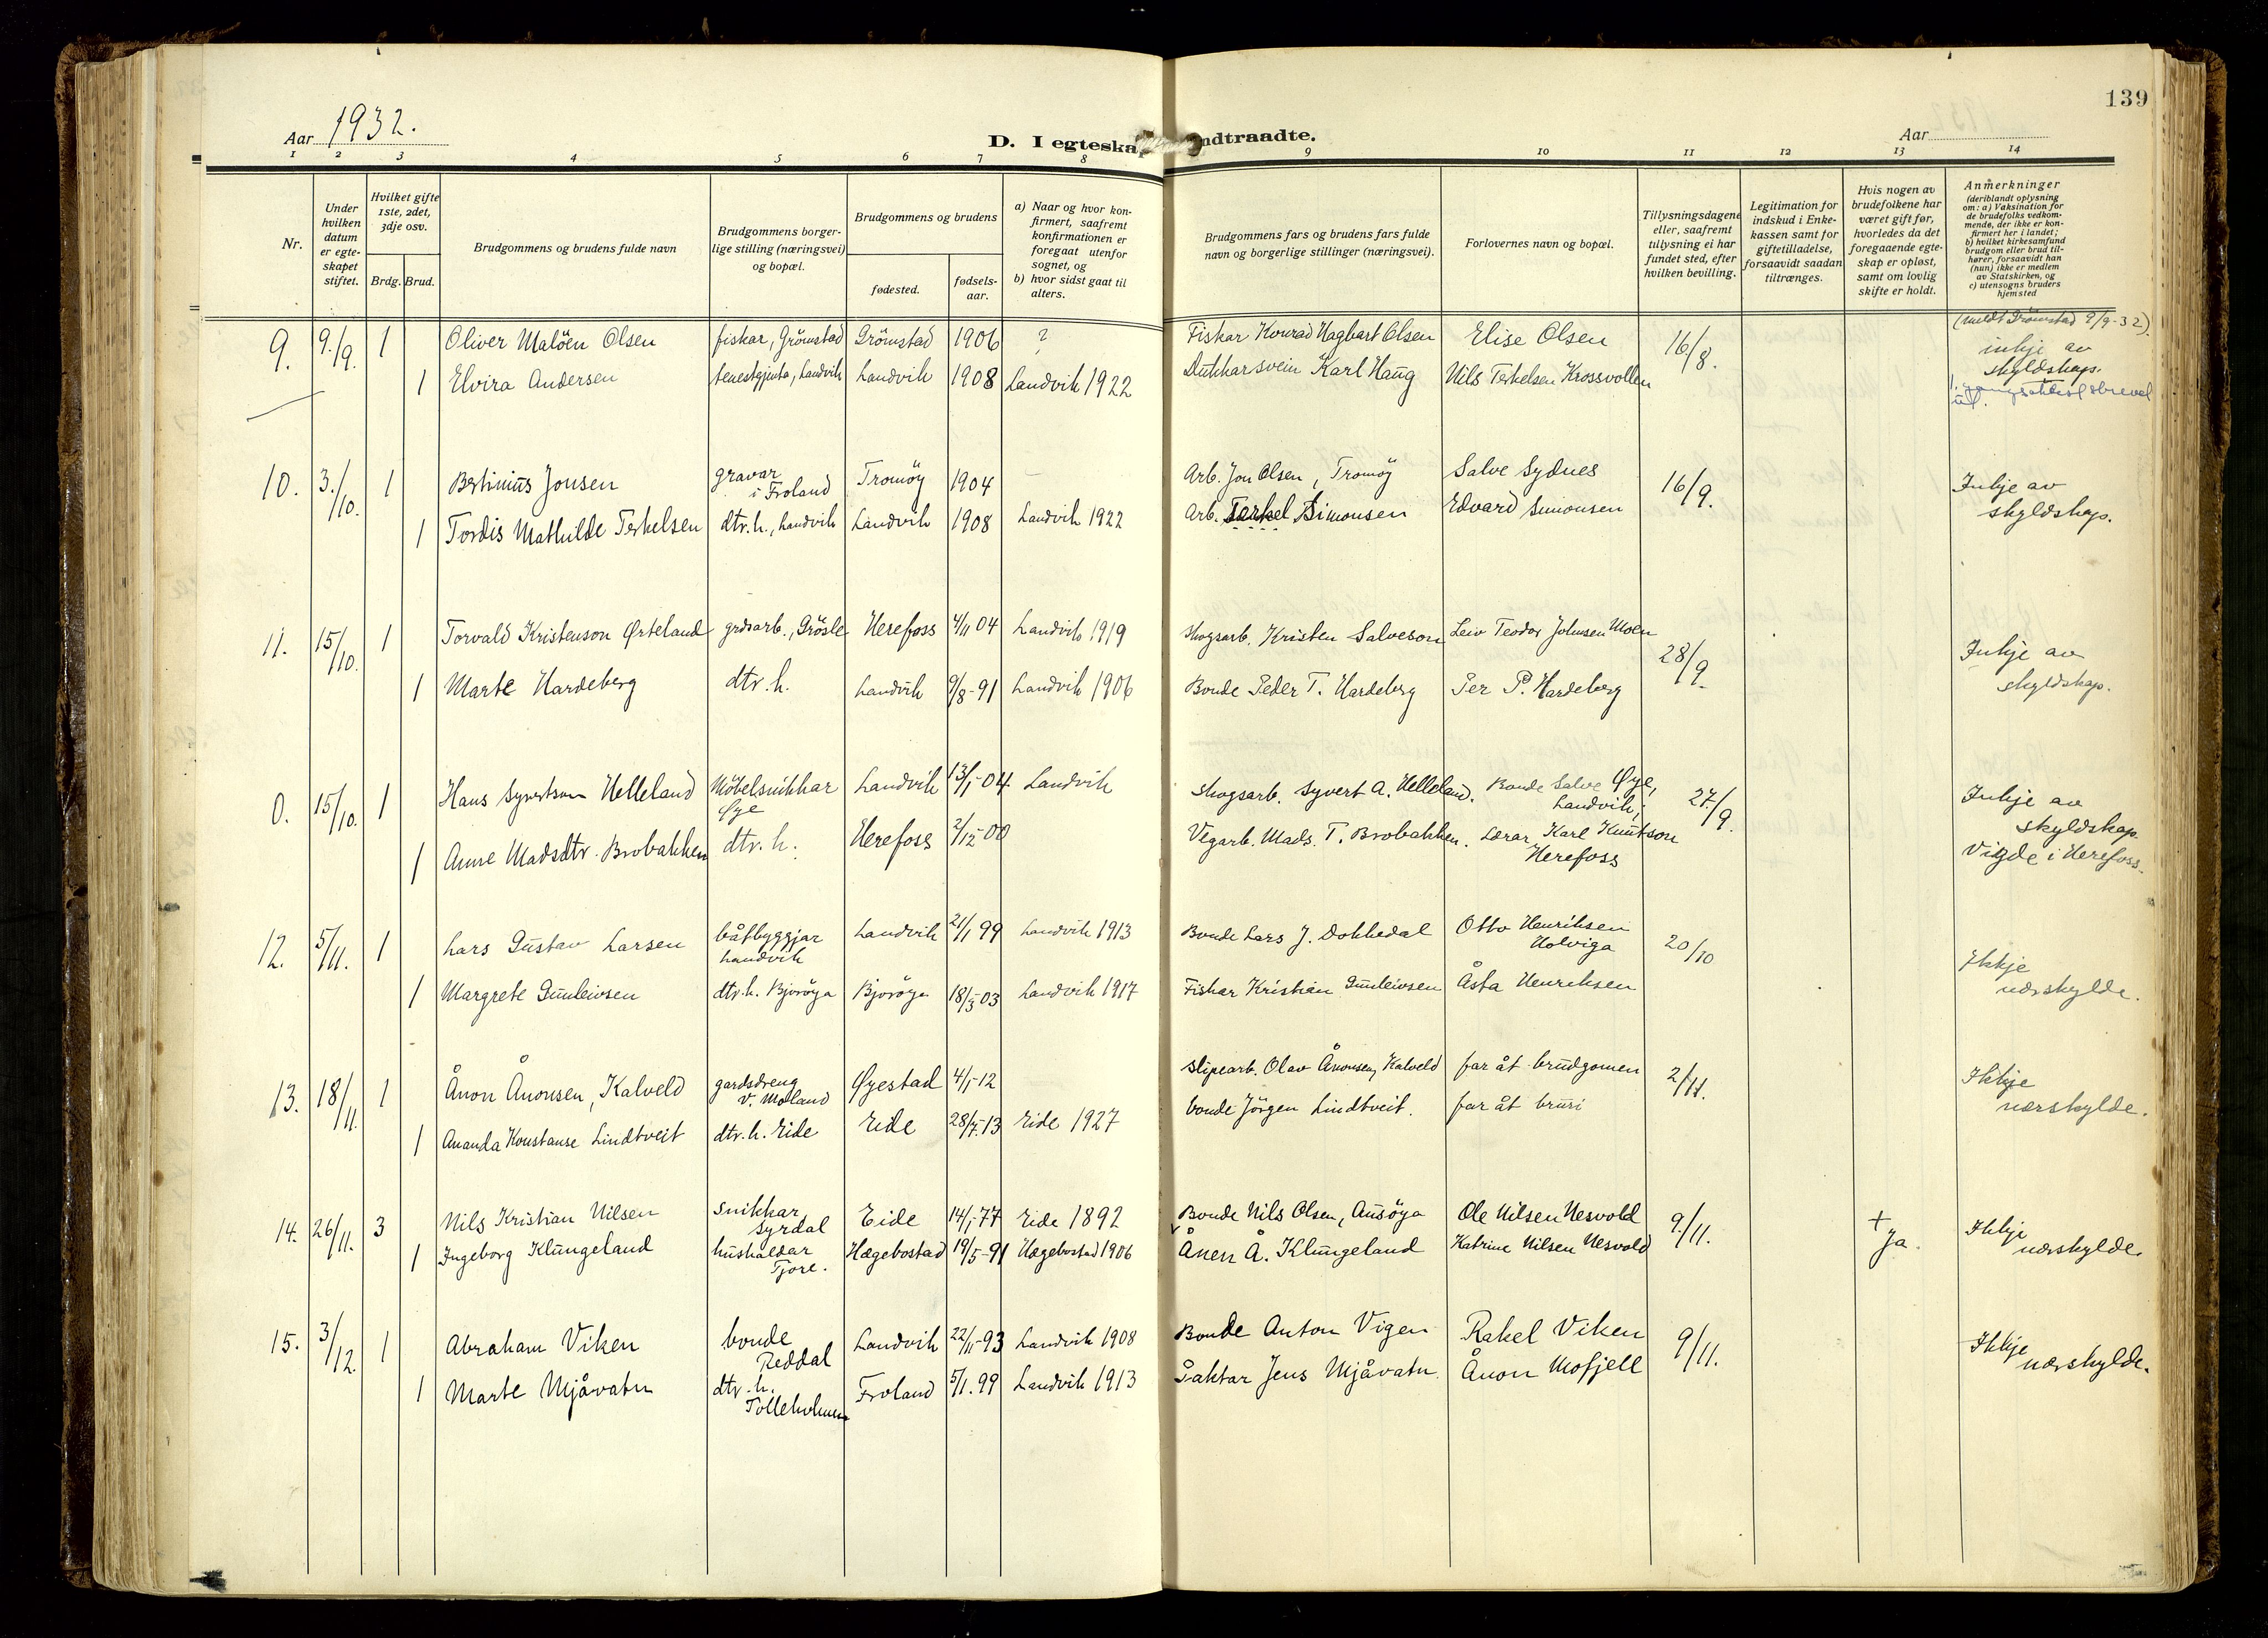 139
Aar 1932.
D. I egteska ndtraadte.
Aar
1 2 3 4 5 6 7 8 9 10 11 12 13 14
Nr.
Under hvilken datum er egteskapet stiftet.
Hvilket gifte 1ste, 2det, 3dje osv.
Brdg. Brud.
Brudgommens og brudens fulde navn
Brudgommens borgerlige stilling (næringsvei) og bopæl.
Brudgommens og brudens
fødested.
fødselsaar.
a) Naar og hvor konfirmert, saafremt konfirmationen er foregaat utenfor sognet, og
b) hvor sidst gaat til alters.
Brudgommens fars og brudens fars fulde navn og borgerlige stillinger (næringsvei).
Forlovernes navn og bopæl.
Tillysningsdagene eller, saafremt tillysning ei har fundet sted, efter hvilken bevilling.
Legitimation for indskud i Enkekassen samt for giftetilladelse, forsaavidt saadan tiltrænges.
Hvis nogen av brudefolkene har været gift før, hvorledes da det foregaaende egteskap er opløst, samt om lovlig skifte er holdt.
Anmerkninger (deriblandt oplysning om: a) Vaksination for de brudefolks vedkommende, der ikke er konfirmert her i landet; b) hvilket kirkesamfund brudgom eller brud tilhører, forsaavidt han (hun) ikke er medlem av Statskirken, og c) utensogns bruders hjemsted
9. 9./9. 1 Oliver Maløen Olsen fiskar, Grömstad Grömstad 1906 ? Fiskar Konrad Hagbart Olsen Elise Olsen 16/8. (meldt Grömstad 9/9-32). inkje av skyldskap.
1 Elvira Andersen tenestgjenta, Landvik Landvik 1908 Landvik 1922 Karl Haug Nils Terkelsen Krossvollen
10. 3./10. 1 Bertinius Jonsen gravar i Froland Tromöy 1904 Arb. Jon Olsen, Tromöy Salve Sydnes 16/9. Inkje av skyldskap.
1 Tordis Mathilde Terkelsen dtr. h., Landvik Landvik 1908 Landvik 1922 Arb. Terkel Simonsen Edvard Simonsen
11. 15/10. 1 Torvald Kristenson Ørteland grdsarb., Grösle Herefoss 4/11 04 Landvik 1919 Skogsarb. Kristen Salveson Leiv Teodor Johnsen Moen 28/9. Inkje av skyldskap.
1 Marte Hardeberg dtr. h. Landvik 9/8-91 Landvik 1906 Bonde Peder T. Hardeberg Per P. Hardeberg
0. 15/10. 1 Hans Syvertson Helleland Möbelsnikkar Øye Landvik 13/1-04. Landvik Skogsarb. Syvert A. Helleland. Bonde Salve Øye, Landvik; 27./9. Inkje av skyldskap. Vigde i Herefoss.
1 Anne Madsdtr. Brobakken dtr. h. Herefoss 2/12-00 Vegarb. Mads. T. Brobakken. Lærar Karl Knutson Herefoss
12. 5/11. 1 Lars Gustav Larsen båtbyggjar Landvik Landvik 21/1 99 Landvik 1913 Bonde Lars J. Dokkedal Otto Henriksen Holviga 20/10 Ikkje nærskylde.
1 Margrete Gunleivsen dtr. h. Bjoröya Bjoröya 18/3-03 Landvik 1917 Fiskar Kristian Gunleivsen Åsta Henriksen
13. 18/11. 1 Ånon Ånonsen, Kalveld gardsdreng v. Moland Øyestad 4/1-12 Slipearb. Olav Ånonsen, Kalveld far åt brudgomen 2/11. Ikkje nærskylde.
1 Ananda Konstanse Lindtveit dtr. h. Eide Eide 28/7-13 Eide 1927 bonde Jörgen Lindtveit. far åt bruri
14. 26/11. 3 Nils Kristian Nilsen Snikkar Syrdal Eide 14/1-77 Eide 1892 Bonde Nils Olsen, Ausöya Ole Nilsen Nesvold 9/11. + Ja. Ikkje nærskylde.
1 Ingeborg Klungeland hushaldar Tjore. Hægebostad 19/5-91 Hægebostad 1906 Ånen Å. Klungeland Katrine Nilsen Nesvold
15. 3/12. 1 Abraham Viken bonde Reddal Landvik 22/11-93 Landvik 1908 Bonde Anton Vigen Rakel Viken 9/11. Ikkje nærskylde.
1 Marte Mjåvatn dtr. h. Tolleholmen Froland 5/1. 99 Landvik 1913 Jens Mjåvatn. Ånon Mofjell